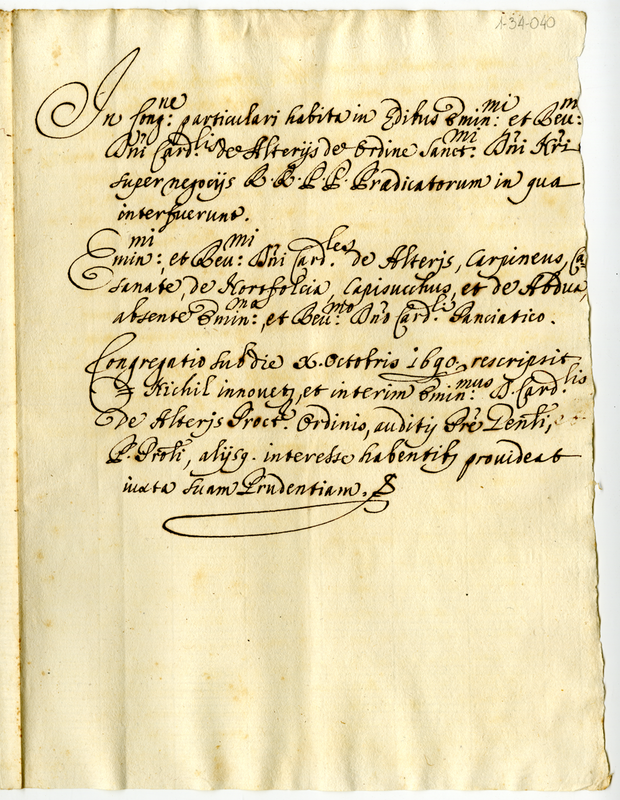 1-34-040
In Cong:ne particulari habita in Ædibus Emin:mi et Reu:mi
Dñi Card:lis de Alterijs de Ordine Sanct:mi Dñi Nri
super negocijs R.R.P.P. Prædicatorum in qua
interfuerunt.
Emin:mi et Reu:mi Dñi Card.les de Alterjs, Carpineus, Ca-
sanate, de Nortfolcia, Capisucchus, et de Abdua,
absente Emin:mo, et Reu:mo Dño Card:li Panciatico.
Congregatio sub die X. Octobris 1690. rescripsit
Nichil innouet, et interim Emin:mus D. Card:lis
de Alterjs Prot:r Ordinis, auditis Pre Genli,
P. Proli, alijsq. interesse habentib9 prouideat
iuxta suam Prudentiam.